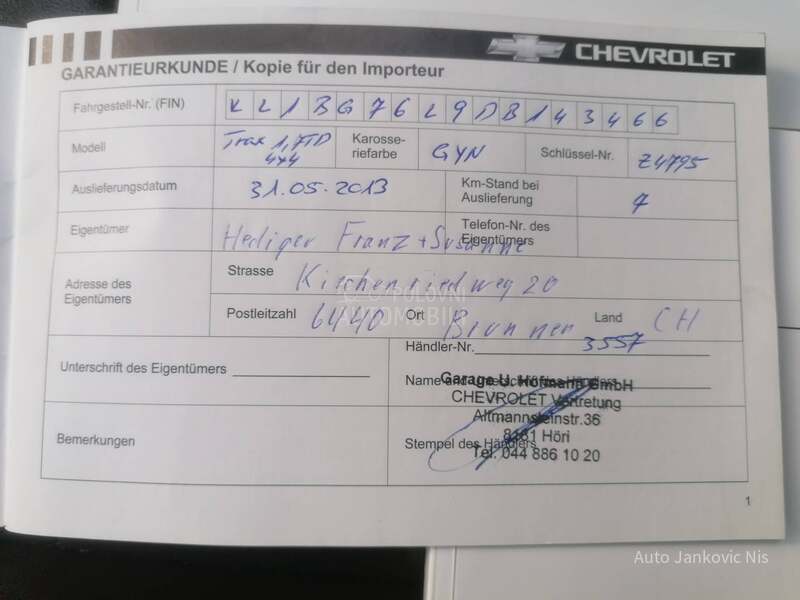 CHEVROLET
GARANTIEURKUNDE / Kopie für den Importeur
Fahrgestell-Nr. (FIN) KL1BG76L9DB143466
Modell Trax 1,7TD 4x4 Karosse-riefarbe GYN Schlüssel-Nr. Z4795
Auslieferungsdatum 31.05.2013 Km-Stand bei Auslieferung 7
Eigentümer Hediger Franz + Susanne Telefon-Nr. des Eigentümers
Adresse des Eigentümers
Strasse Kirchenriedweg 20
Postleitzahl 6440 Ort Brunnen Land CH
Händler-Nr. 3557
Unterschrift des Eigentümers
Name und
Garage U. Hofmann GmbH
CHEVROLET Vertretung
Altmannsteinstr.36
8181 Höri
Tel. 044 886 10 20
Bemerkungen
Stempel des Händlers
1
POLOVNI
AUTOMOBILI
Auto Jankovic Nis